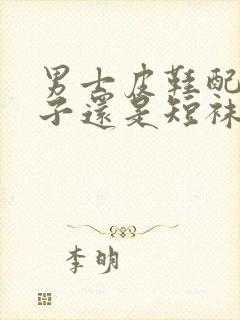 男士皮鞋配
子還是短袜
李明